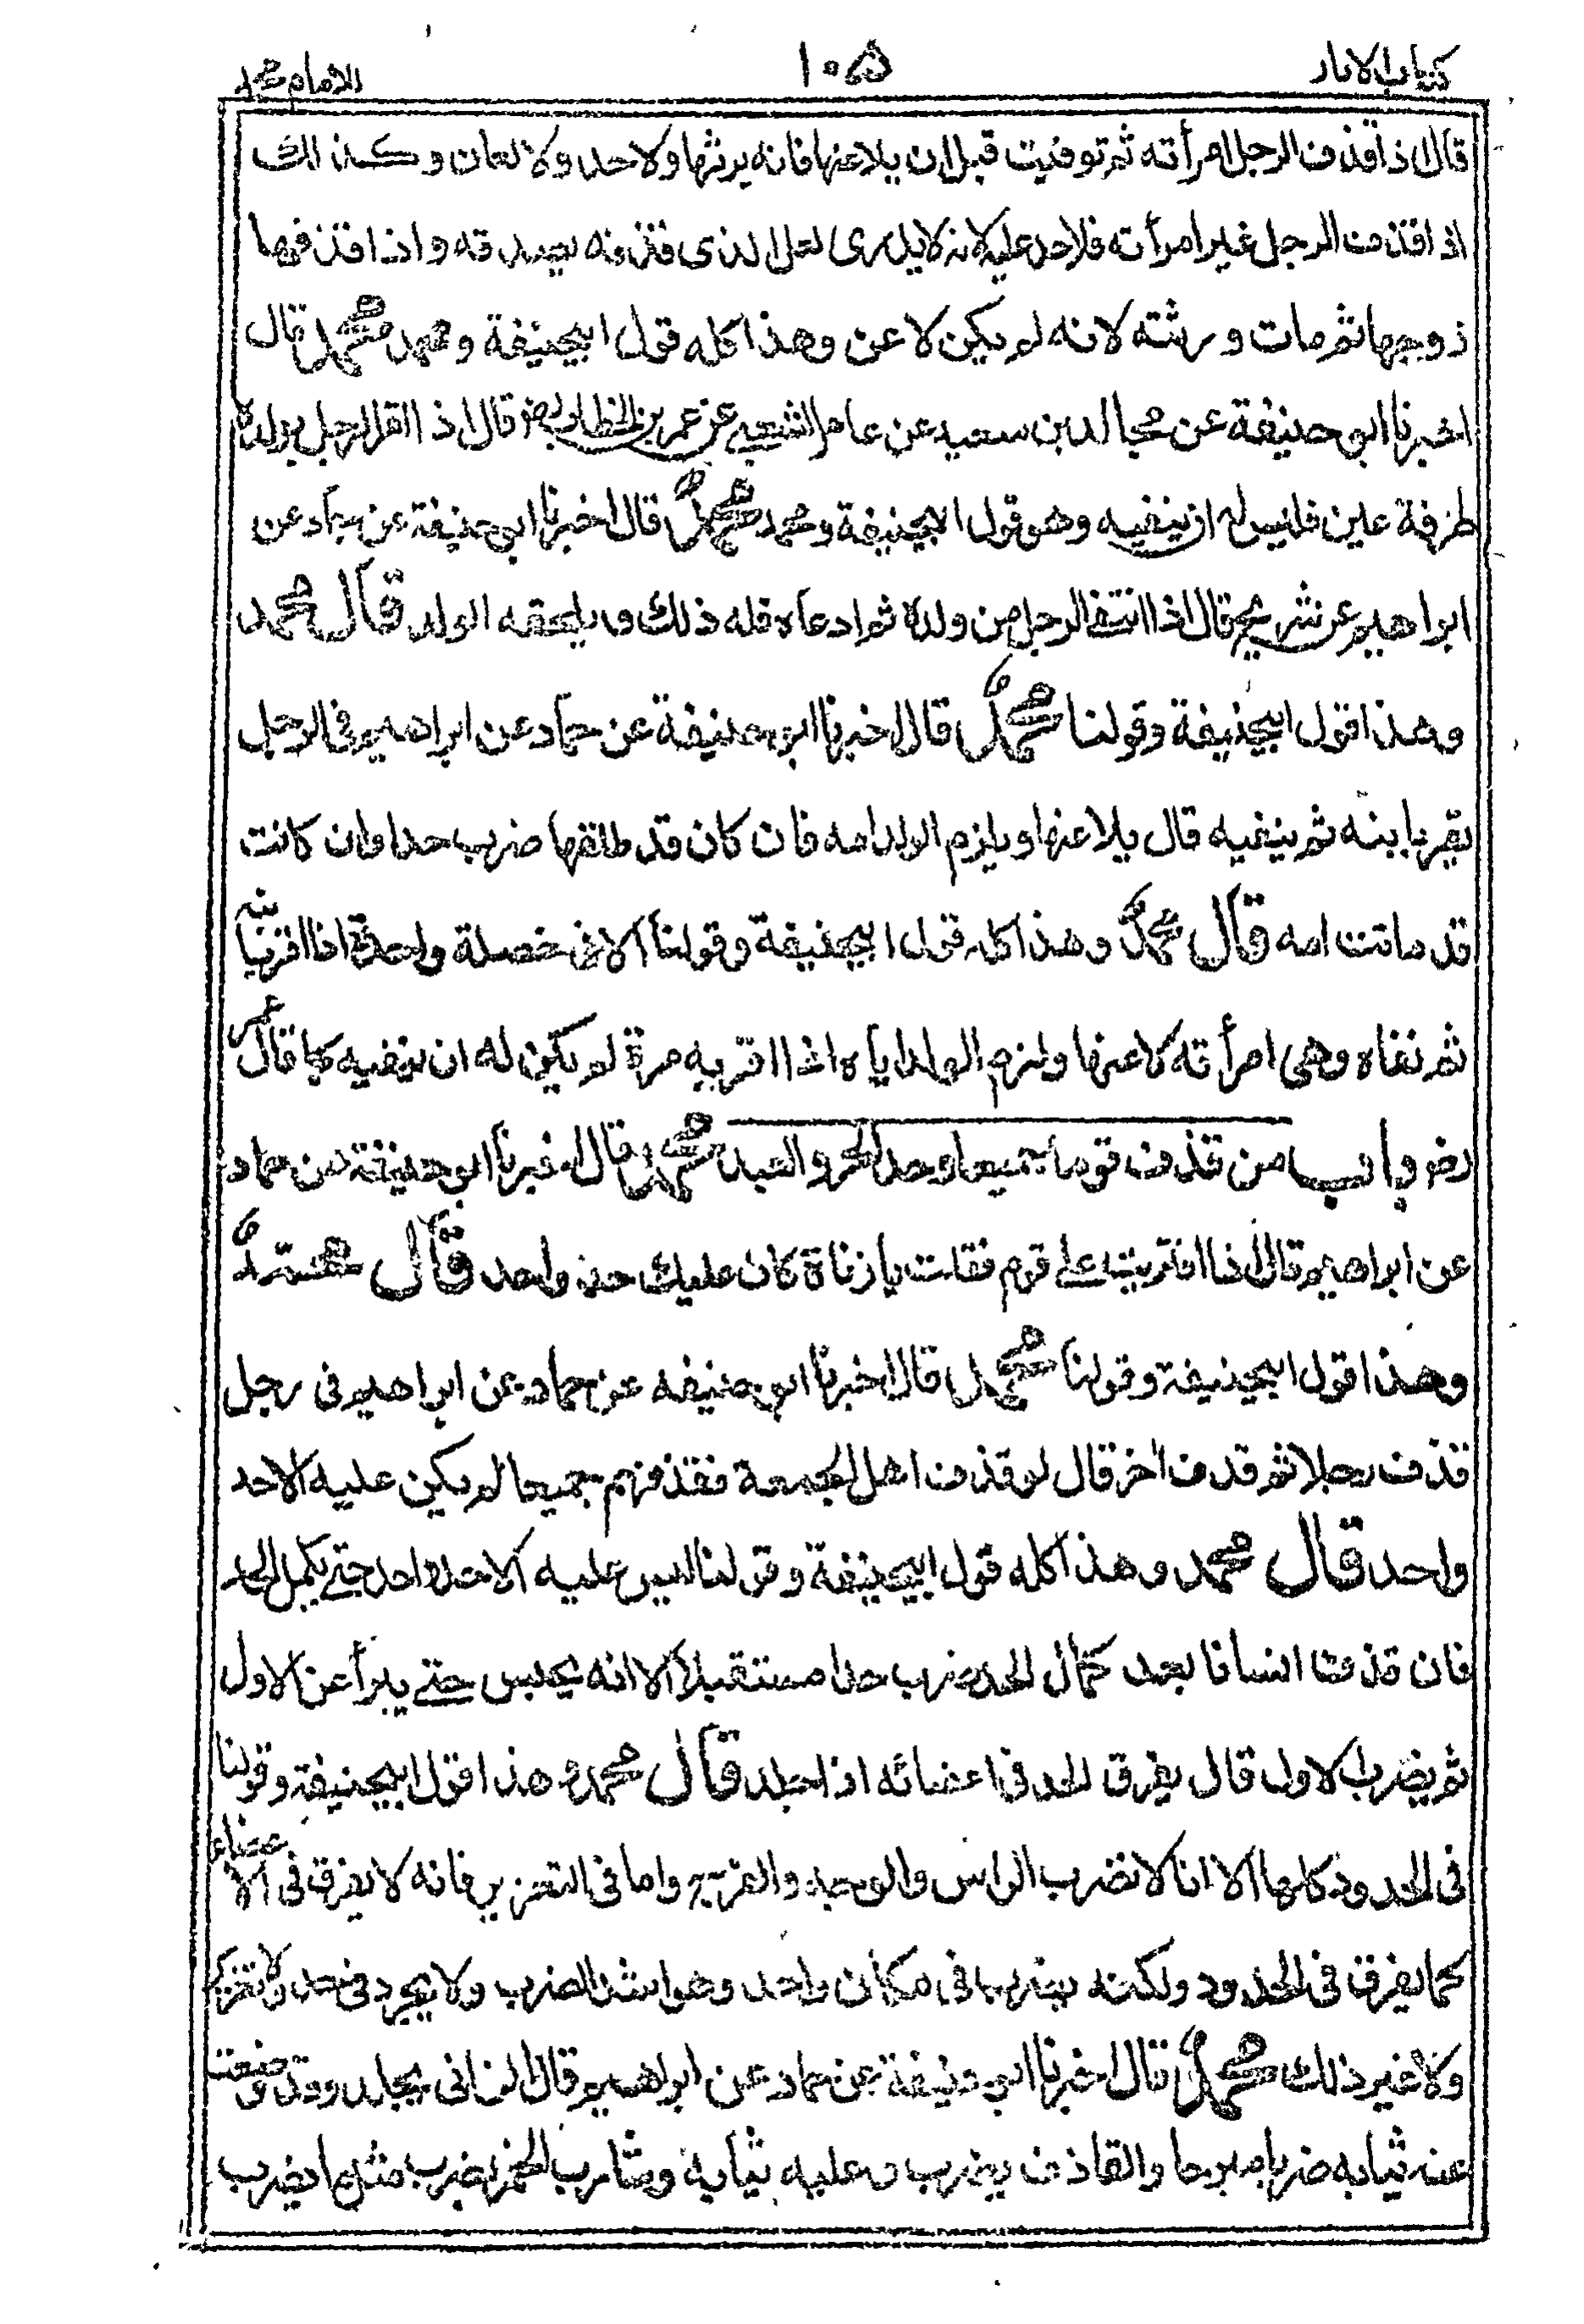 كتاب الاثار ١٠٥ للامام محمد
قال اذا قذف الرجل امرأته ثم توفيت قبل ان يلاعنها فانه يرثها ولا حد ولا لعان وكذلك
اذا قذف الرجل غير امرأته فلا حد عليه لانه لا يدرى لعل الذى قذفه يصدقه واذا قذفها
زوجها ثم مات ورثته لانه لم يكن لاعن وهذا كله قول ابيحنيفة ومحمد محمد قال
اخبرنا ابو حنيفة عن مجالد بن سعيد عن عامر الشعبے عن عمر بن الخطاب رضـ قال اذا اقر الرجل بولده
طرفة عين فليس له ان ينفيه وهو قول ابيحنيفة ومحمد محمد قال اخبرنا ابو حنيفة عن حماد عن
ابراهيم عن شريح قال اذا انتفے الرجل من ولده ثم ادعاه فله ذلك ويلحقه الولد قال محمد
وهذا قول ابيحنيفة وقولنا محمد قال اخبرنا ابو حنيفة عن حماد عن ابراهيم فى الرجل
يقر بابنه ثم ينفيه قال يلاعنها ويلزم الولد امه فان كان قد طلقها ضرب حدا وان كانت
قد ماتت امه قال محمد وهذا كله قول ابيحنيفة وقولنا الا فى خصلة واحدة اذا اقر بابنه
ثم نفاه وهى امرأته لاعنها ولزم الولد اياه اذا اقر به مرة لم يكن له ان ينفيه كما قال عمر
رضـ باب من قذف قوما جميعا وحد الحر والعبد محمد قال اخبرنا ابو حنيفة عن حماد
عن ابراهيم قال اذا افتريت على قوم فقلت يا زناة كان عليك حد واحد قال محمد
وهذا قول ابيحنيفة وقولنا محمد قال اخبرنا ابو حنيفه عن حماد عن ابراهيم فى رجل
قذف رجلا ثم قذف اخر قال لو قذف اهل الجمعة فقذفهم جميعا لم يكن عليه الا حد
واحد قال محمد وهذا كله قول ابيحنيفة وقولنا ليس عليه الا حد واحد حتے يكمل الحد
فان قذف انسانا بعد كمال الحد ضرب حدا مستقبلا الا انه يحبس حتے يبرأ عن الاول
ثم يضرب الاول قال يفرق الحد فى اعضائه اذا جلد قال محمد وهذا قول ابيحنيفة وقولنا
فى الحدود كلها الا انا لا نضرب الراس والوجه والفرج واما فى التعزير فانه لا يفرق فى الاعضاء
كما يفرق فى الحدود ولكنه يضربها فى مكان واحد وهو اشد الضرب ولا يجرد فى حد ولا تعزير
ولا غير ذلك محمد قال اخبرنا ابو حنيفة عن حماد عن ابراهيم قال الزانى يجلد وقد وضعت
عنه ثيابه ضربا مبرحا والقاذف يضرب وعليه ثيابه وشارب الخمر يضرب مثل ما يضرب